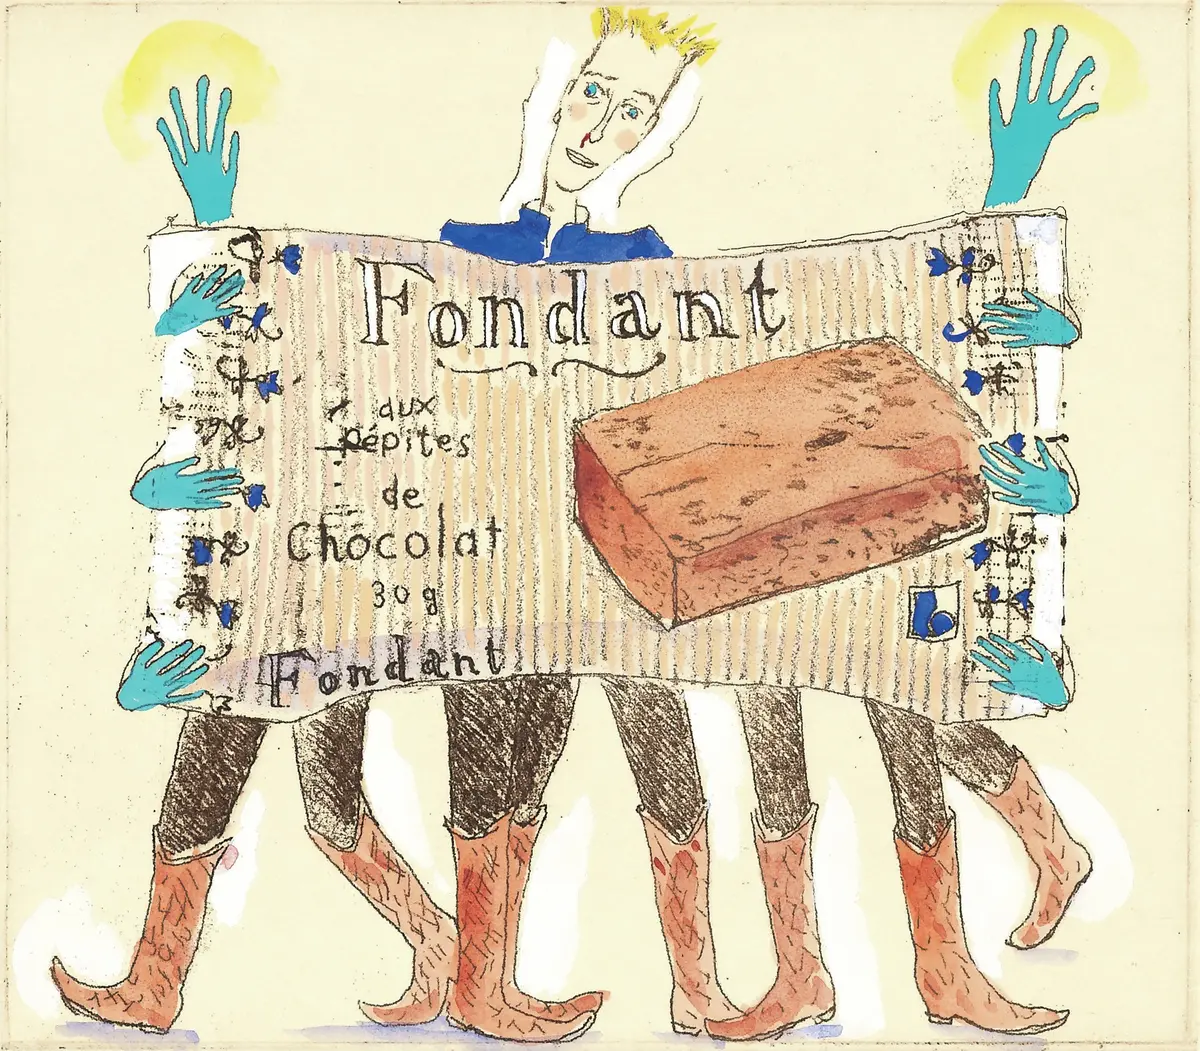 Fondant
aux
pépites
de
Chocolat
30 g
Fondant
b